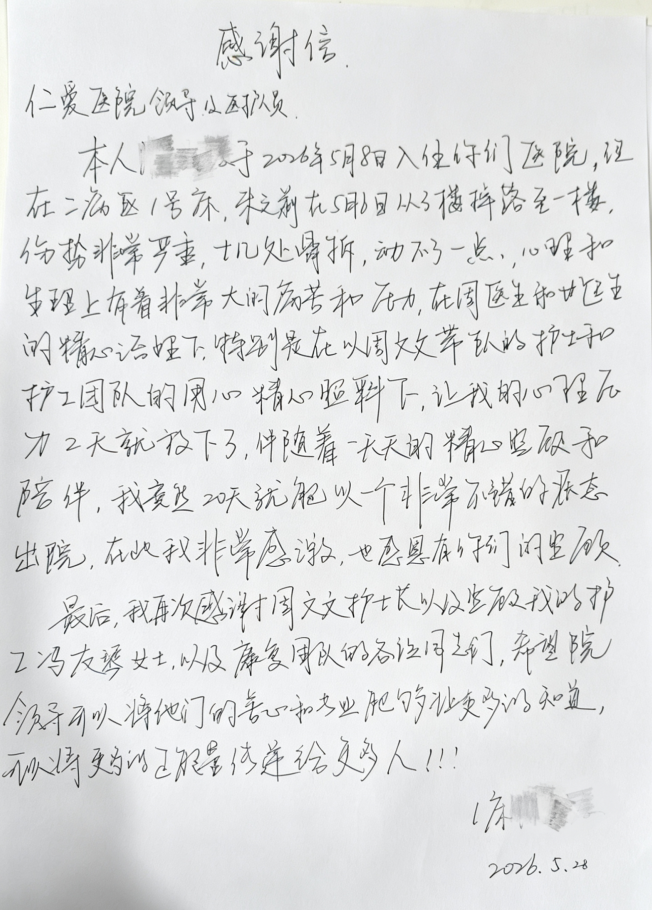 感谢信.
仁爱医院领导及医护人员
本人 于2026年5月8日入住你们医院,现
在二病区1号床,来之前在5月6日从3楼摔落至一楼,
伤势非常严重,十几处骨折,动不了一点,心理和
生理上有着非常大的病苦和压力,在周医生和 医生
的精心治理下,特别是在以周文文带队的护士和
护工团队的用心精心照料下,让我的心理压
力2天就放下了,伴随着一天天的精心照顾和
陪伴,我竟然20天就能以一个非常不错的状态
出院,在此我非常感激,也感恩有你们的照顾.
最后,我再次感谢周文文护士长以及照顾我的护
工冯友琴女士,以及康复团队的各位同志们,希望院
领导可以将他们的善心和专业能够让更多的知道,
可以将更多的正能量传递给更多人!!!
1床
2026.5.28